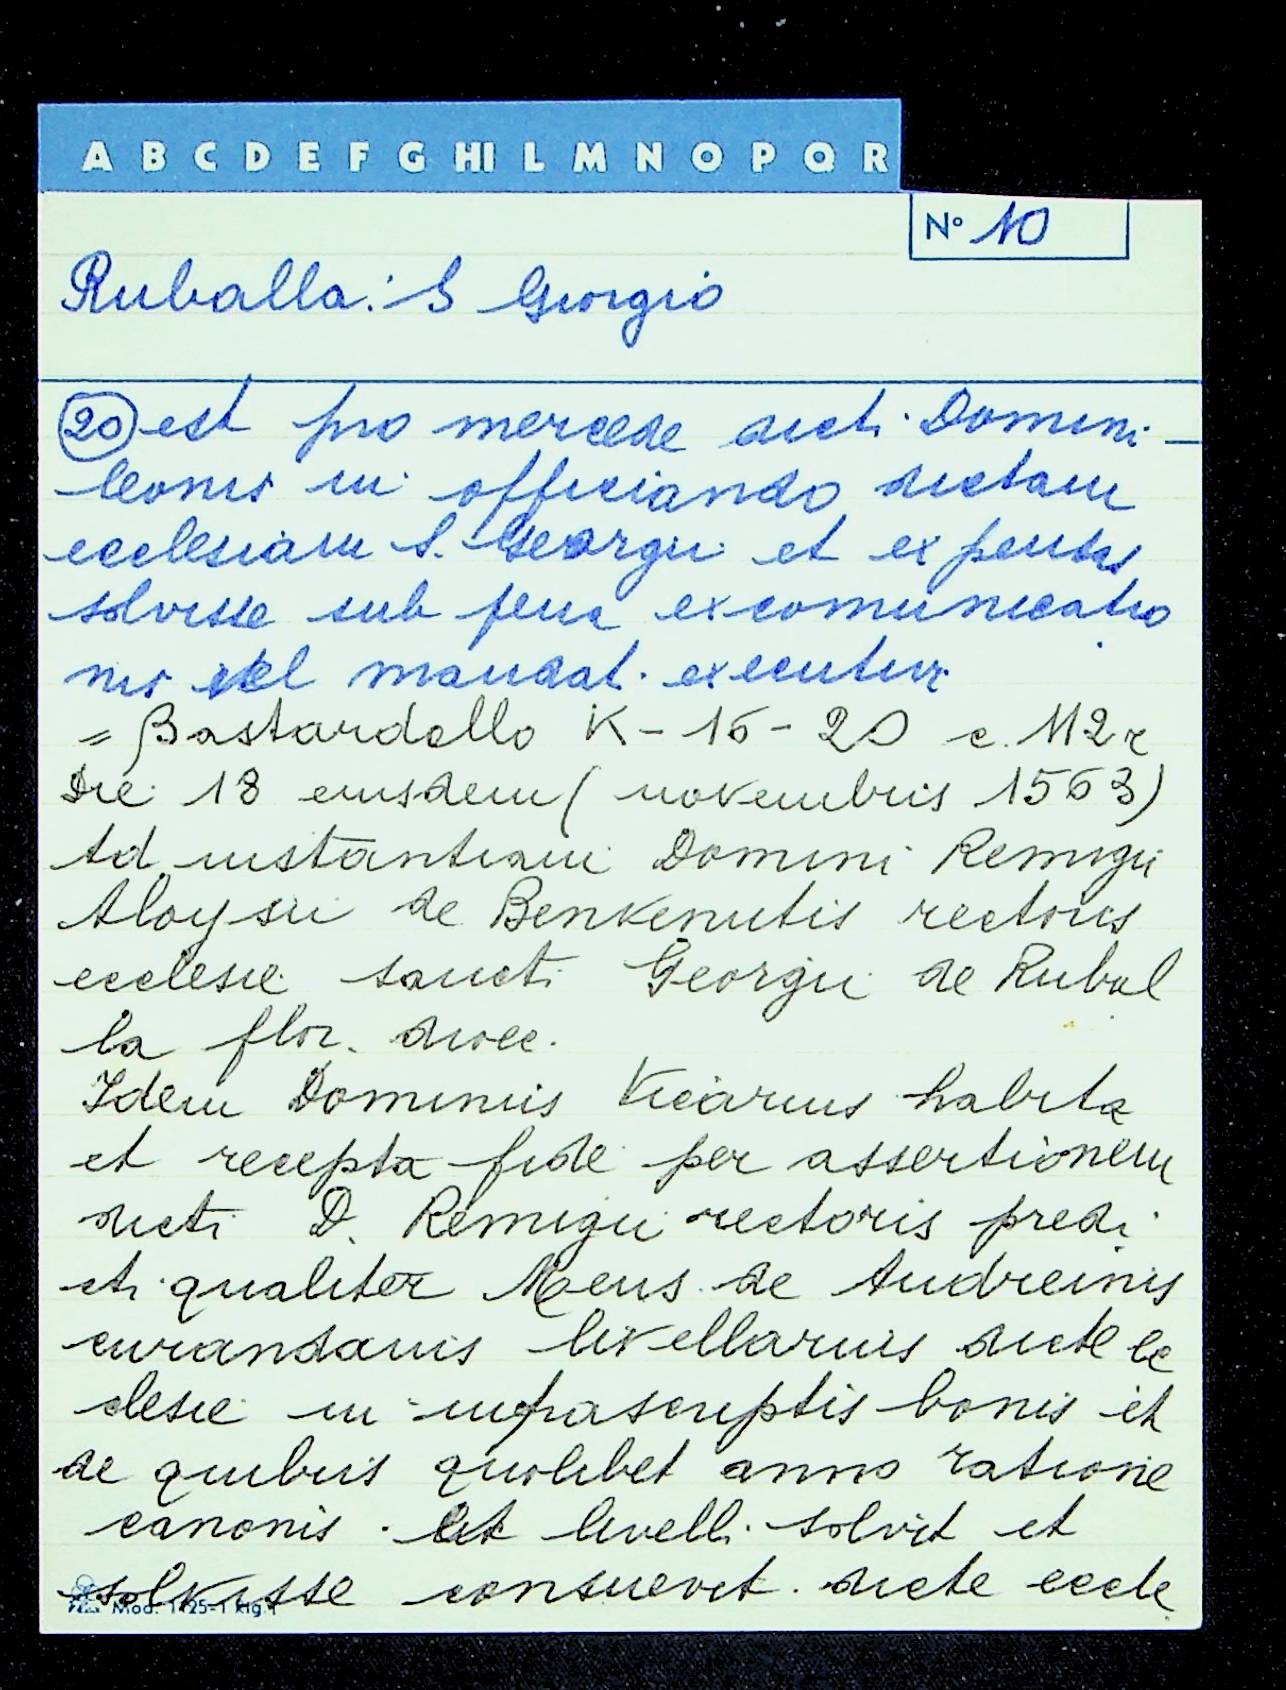 A B C D E F G HI L M N O P Q R
N° 10
Ruballa: S Giorgio
20 est pro mercede dicti Domini
Leonis in officiando dictam
ecclesiam S. Georgii et expensas
solvisse sub pena excomunicatio
nis vel mandat. executivi
= Bastardello K-16-20 c. 112r
Die 18 eiusdem (novembris 1563)
Ad instantiam Domini Remigii
Aloysii de Benvenutis rectoris
ecclesie sancti Georgii de Rubal
la flor. dioec.
Idem Dominus Vicarius habita
et recepta fide per assertionem
dicti D. Remigii rectoris predi
cti qualiter Meus de Andreinis
curandaius livellarius dicte ec
clesie in infrascriptis bonis et
de quibus quolibet anno ratione
canonis et livelli solvit et
solvisse consuevit dicte eccle
Mod. 1125-1 kig.